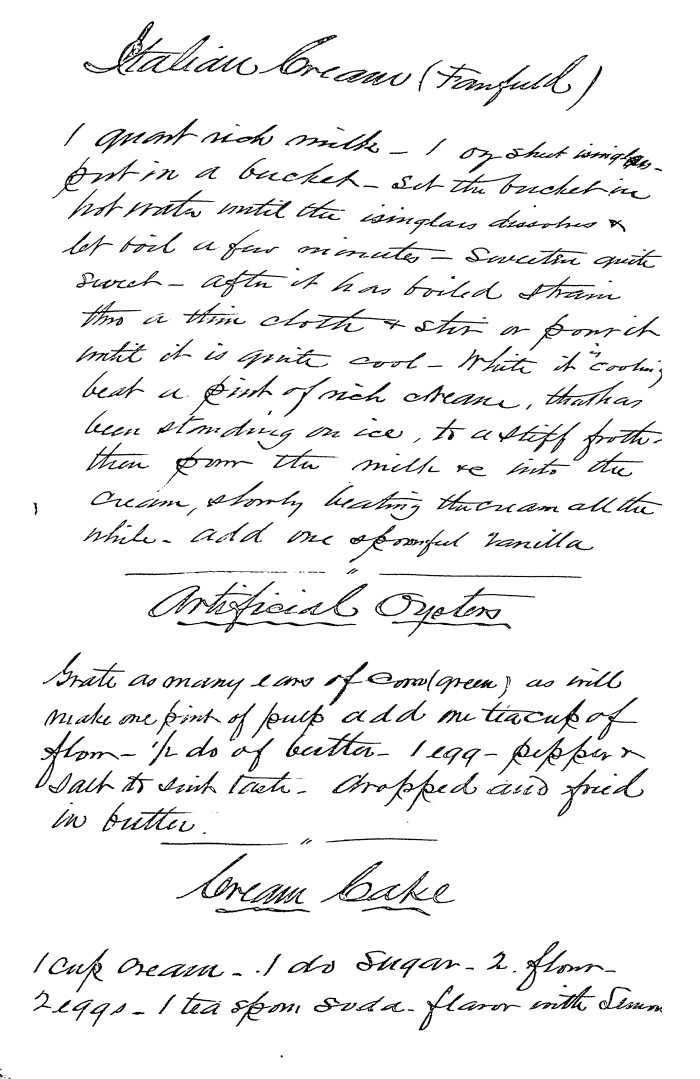 Italian Cream (Fanfield)
1 quart rich milk - 1 oz sheet isinglass -
put in a bucket - Set the bucket in
hot water until the isinglass dissolves &
let boil a few minutes - Sweeten quite
sweet - after it has boiled strain
thro a thin cloth & stir or pour it
until it is quite cool - While it is cooling
beat a pint of rich cream, that has
been standing on ice, to a stiff froth -
then pour the milk &c into the
cream, slowly beating the cream all the
while - add one spoonful vanilla
"
Artificial Oysters
Grate as many ears of corn (green) as will
make one pint of pulp add one teacup of
flour - 1/2 do of butter - 1 egg - pepper &
salt to suit taste - dropped and fried
in butter.
"
Cream Cake
1 cup cream - 1 do sugar - 2. flour -
2 eggs - 1 tea spoon soda - flavor with Lemon